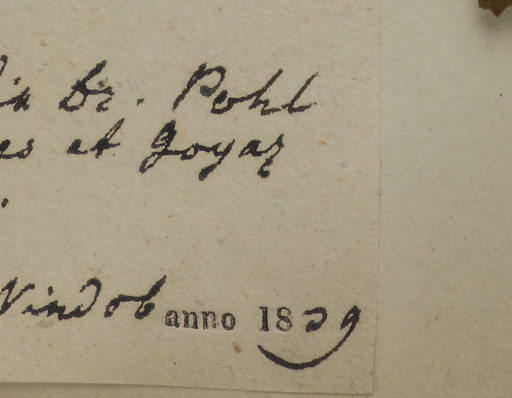 Dr. Pohl
es et Goyaz
Vindob anno 1839